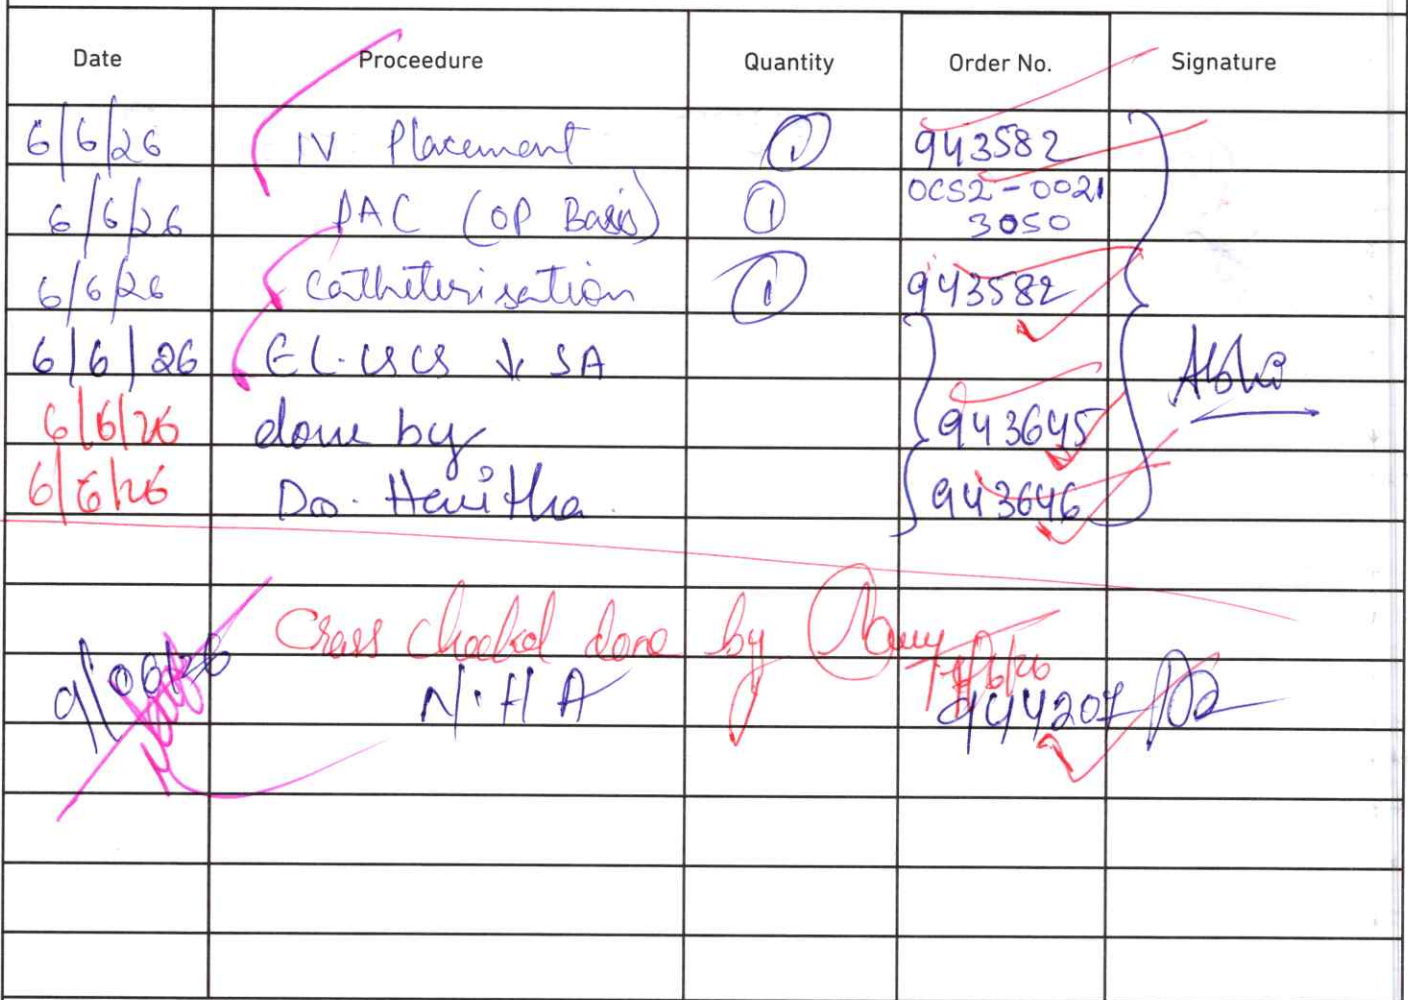 Date Proceedure Quantity Order No. Signature
6/6/26 IV Placement 1 943582
6/6/26 PAC (OP Basis) 1 OCS2-0021
3050
6/6/26 Catheterisation 1 943582
6/6/26 EL. LSCS ↓ SA
6/6/26 done by 943645
6/6/26 Dr. Havitha 943646
Cross checked done by
9/06/26 N.H A 944207